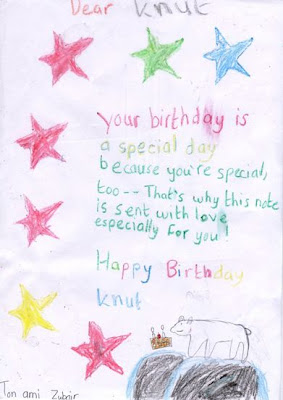 Dear Knut
Your birthday is
a special day
because you're special,
too -- That's why this note
is sent with love
especially for you!
Happy Birthday
Knut
Ton ami Zubair